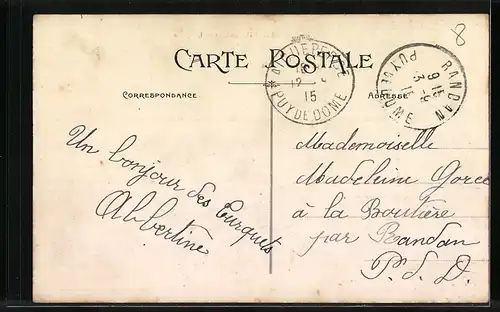 8
CARTE POSTALE
AIGUEPERSE
12
15
PUY DE DOME
RANDAN
9 15
3-8
15
PUY DE DOME
CORRESPONDANCE
ADRESSE
Un bonjour des Turquets
Albertine
Mademoiselle
Madeleine Gorce
à la Boutière
par Randan
P. d. D.